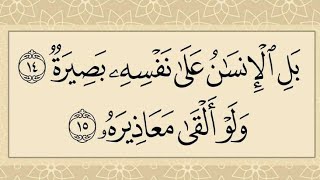 بَلِ ٱلْإِنسَٰنُ عَلَىٰ نَفْسِهِۦ بَصِيرَةٌۭ ١٤
وَلَوْ أَلْقَىٰ مَعَاذِيرَهُۥ ١٥